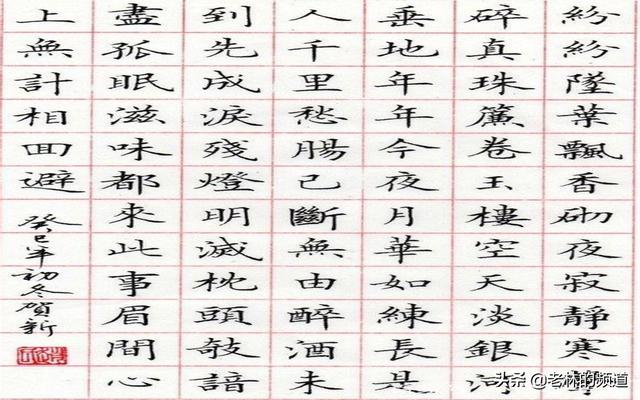 紛紛墜葉飄香砌夜寂靜寒
碎真珠簾卷玉樓空天淡銀河
垂地年年今夜月華如練長是
人千里愁腸已斷無由醉酒未
到先成淚殘燈明滅枕頭敧諳
盡孤眠滋味都來此事眉間心
上無計相回避
癸巳年初冬賀新
头条 @老林的频道